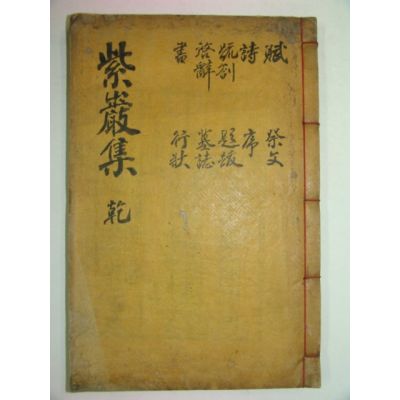 紫巖集 乾
賦
詩
疏箚
啓辭
書
祭文
序
題跋
墓誌
行狀